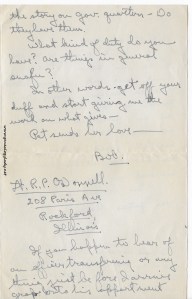 the story on Gov. quarters - Do
they have them.
What kind of duty do you
have? Are things in general
awful?
In other words - get off your
duff and start giving me the
word on what gives -
Pat sends her love -
Bob.
208 Paris Ave
Rockford,
Illinois
If you happen to hear of
transferring or any
thing just be
his apartment